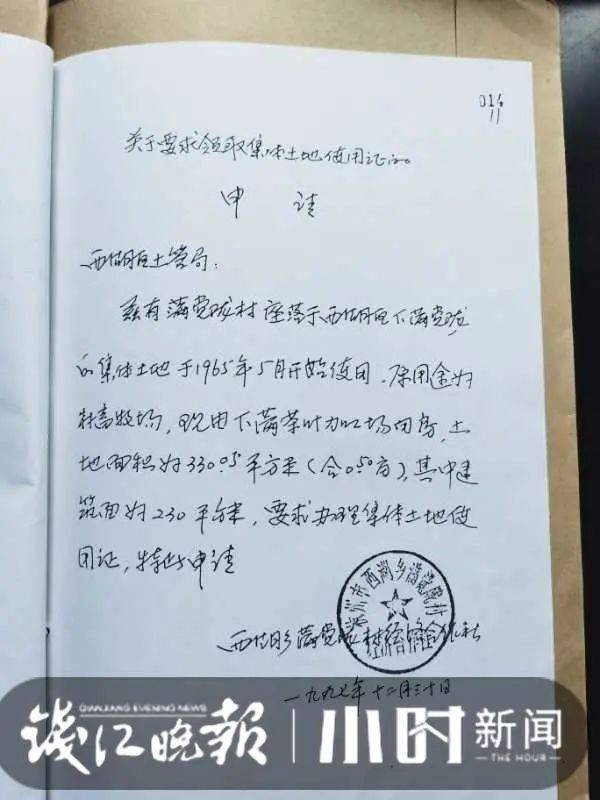 014
11
关于要求领取集体土地使用证的
申 请
西湖区土管局:
兹有满觉陇村座落于西湖区下满觉陇
的集体土地于1965年5月开始使用.原用途为
村畜牧场,现由下满茶叶加工场用房,土
地面积为330.5平方米(合0.50亩),其中建
筑面为230平方米,要求办理集体土地使
用证,特此申请
杭州市西湖乡满觉陇村
经济合作社
西湖乡满觉陇村经济合作社
一九九七年十二月三十日
QIANJIANG EVENING NEWS
钱江晚报 小时新闻
THE HOUR